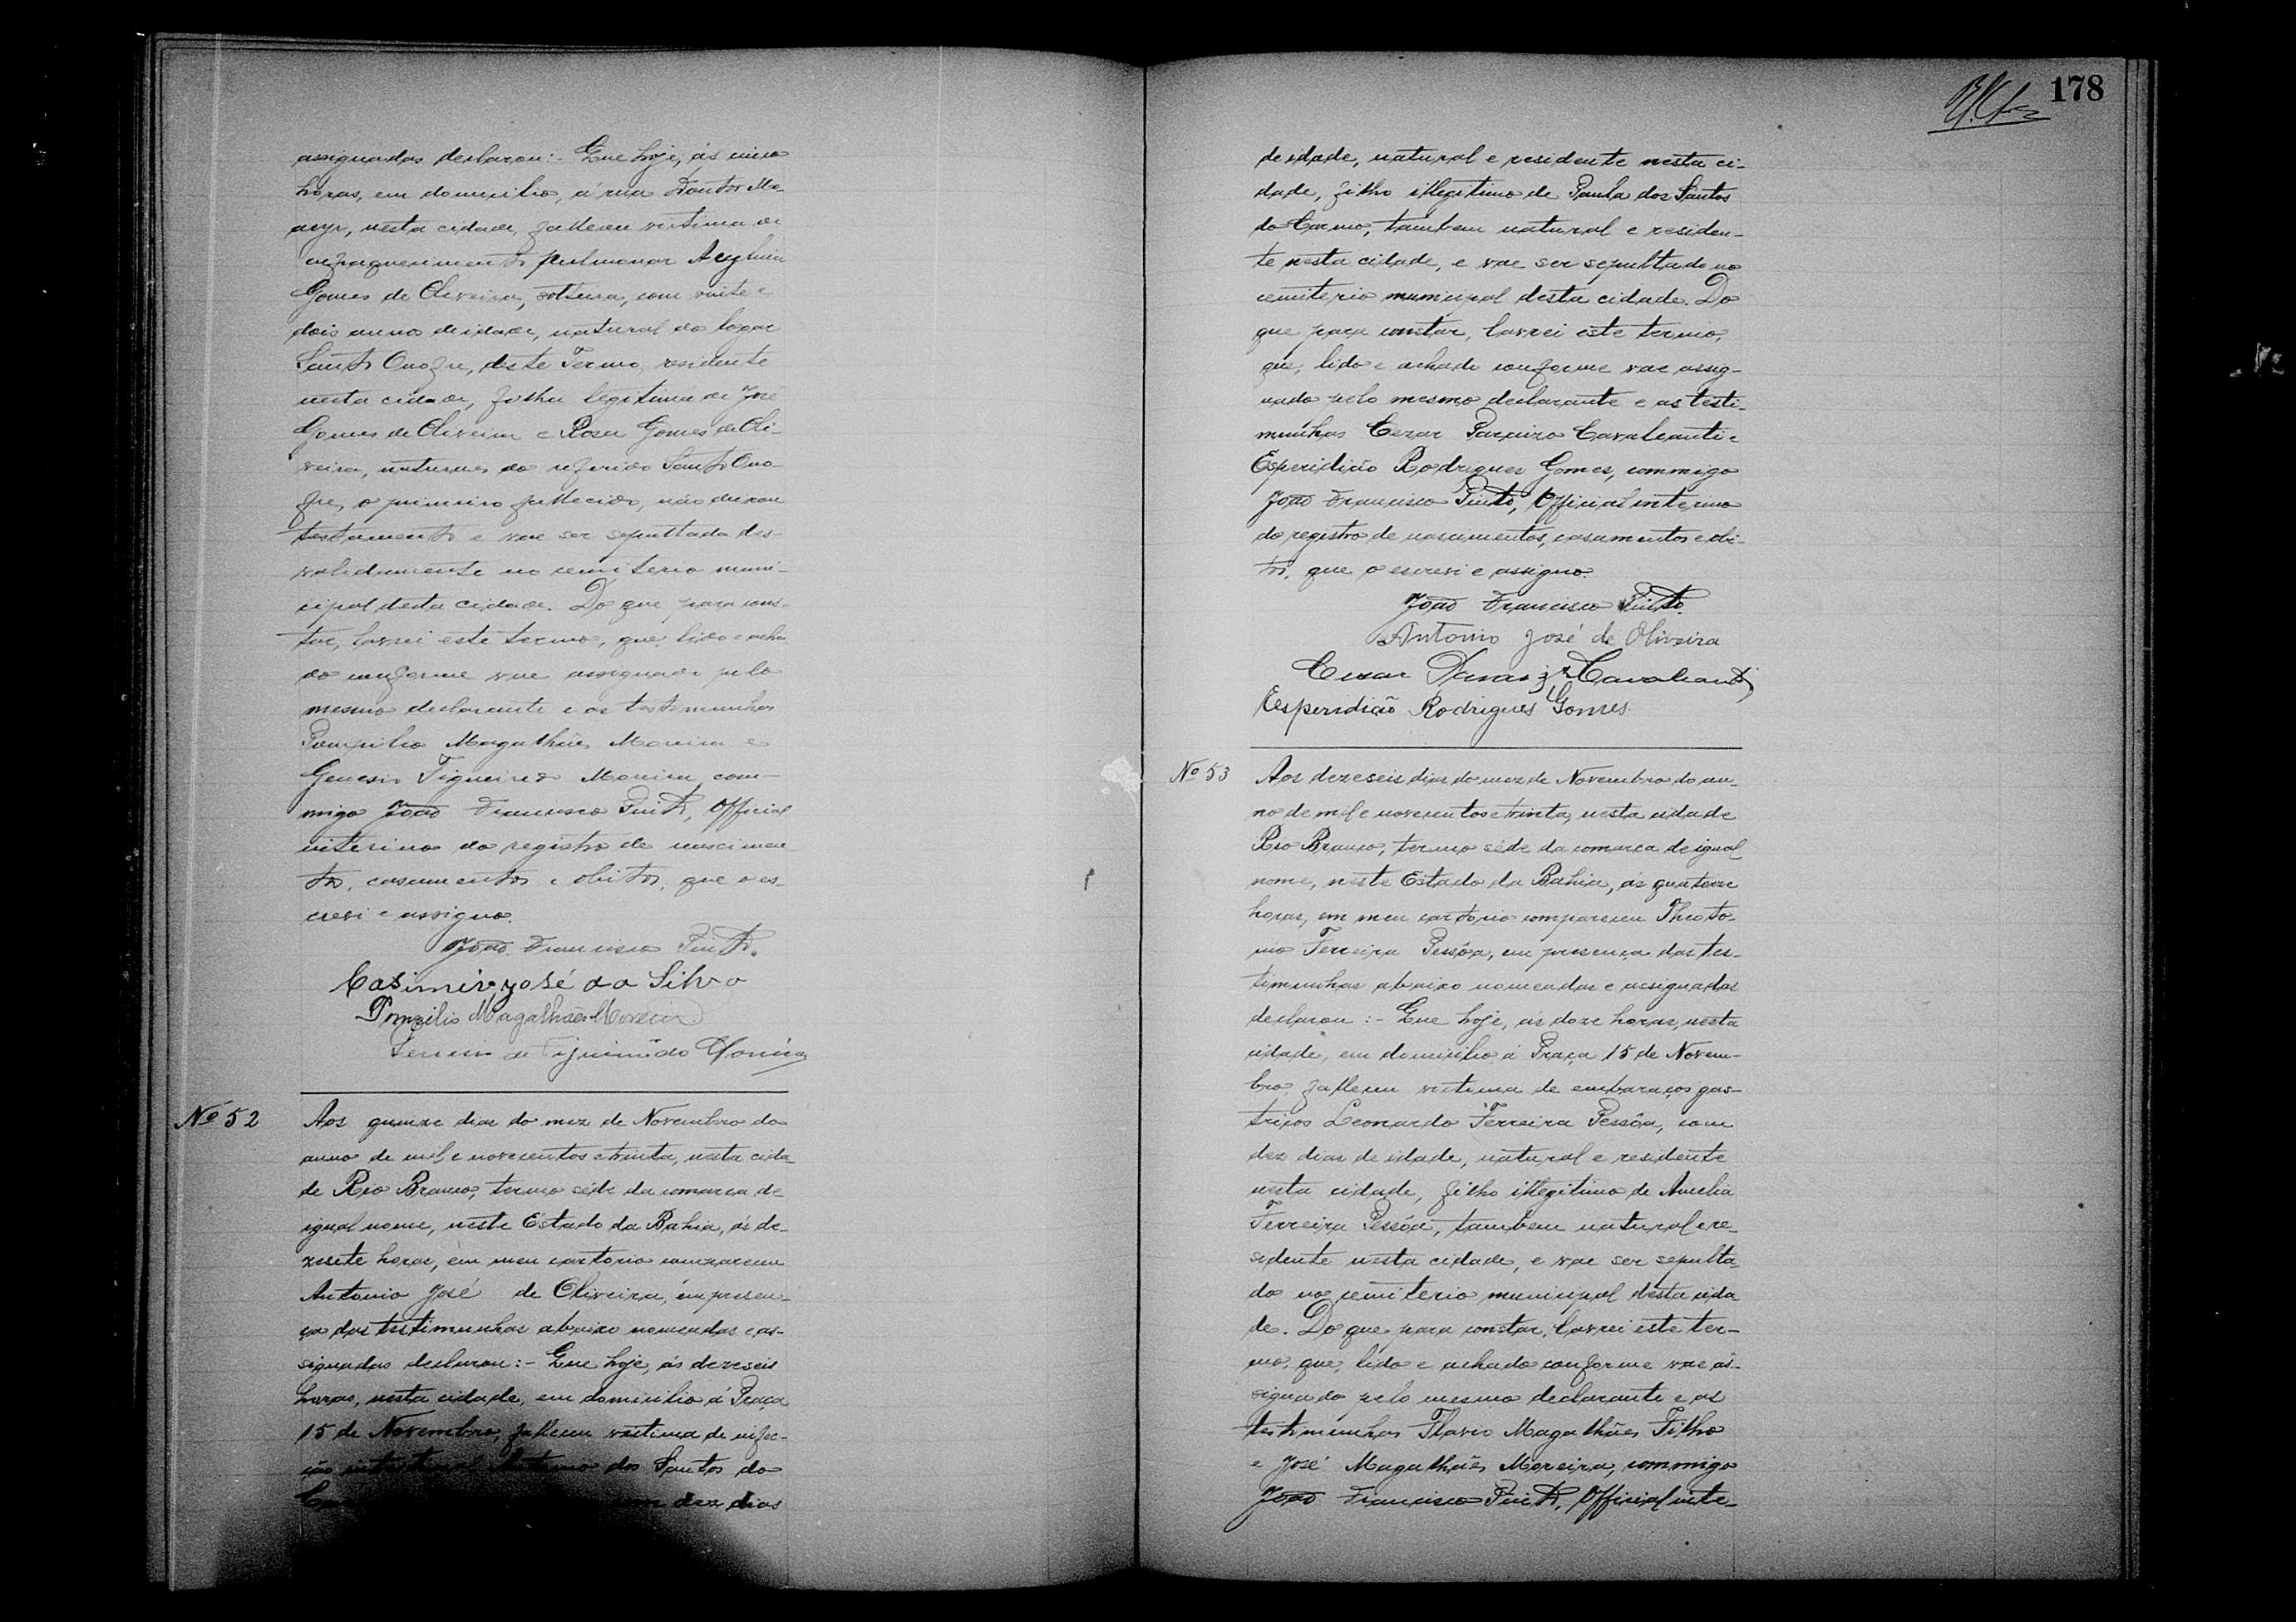 assignadas declarou:- Que hoje, ás cinco
horas, em domicilio, á rua Doutor Ma-
nesta cidade, falleceu victima de
enfraquecimento pulmonar
Gomes de Oliveira, solteira, com vinte e
dois annos de idade, natural do logar
Santo Onofre, deste Termo, residente
nesta cidade, filha legitima de José
Gomes de Oliveira e Rosa Gomes de Oli-
veira, naturaes do referido Santo Ono-
fre, o primeiro fallecido, não deixou
testamento e vae ser sepultada des-
validamente no cemiterio muni-
cipal desta cidade. Do que para cons-
tar, lavrei este termo, que, lido e acha
do conforme vae assignado pelo
mesmo declarante e as testemunhas
Pompilio Magalhães Moreira e
Genesio Figueiredo Moreira, com-
migo João Francisco Pinto, Official
interino do registro de nascimen
tos, casamentos e obitos, que o es-
crevi e assigno.
João Francisco Pinto.
Casimiro José da Silva
Pompilio Magalhães Moreira
de Figueirêdo
Nº 52
Aos quinze dias do mez de Novembro do
anno de mil e novecentos e trinta, nesta cida-
de Rio Branco, termo séde da comarca de
igual nome, neste Estado da Bahia, ás de-
zesete horas, em meu cartorio compareceu
Antonio José de Oliveira, em presen-
ça das testimunhas abaixo nomeadas e as-
signadas declarou:- Que hoje, ás dezeseis
horas, nesta cidade, em domicilio á Praça
15 de Novembro, falleceu victima de infec-
ção intestinal dos Santos do
com dez dias
178
de idade, natural e residente nesta ci-
dade, filho illegitimo de Paula dos Santos
do Carmo, tambem natural e residen-
te nesta cidade, e vae ser sepultado no
cemiterio municipal desta cidade. Do
que para constar, lavrei este termo,
que, lido e achado conforme vae assig-
nado pelo mesmo declarante e as testi-
munhas Cezar Paraizo Cavalcanti e
Esperidião Rodrigues Gomes, commigo
João Francisco Pinto, Official interino
do registro de nascimentos, casamentos e obi-
tos, que o escrevi e assigno.
João Francisco Pinto.
Antonio José de Oliveira
Cezar Paraizo Cavalcanti
Esperidião Rodrigues Gomes.
Nº 53
Aos dezeseis dias do mez de Novembro do an-
no de mil e novecentos e trinta, nesta cidade
Rio Branco, termo séde da comarca de igual
nome, neste Estado da Bahia, ás quatorze
horas, em meu cartorio compareceu Theoto-
nio Ferreira Pessôa, em presença das tes-
timunhas abaixo nomeadas e assignadas
declarou:- Que hoje, ás doze horas, nesta
cidade, em domicilio á Praça 15 de Novem-
bro, falleceu victima de embaraços gas-
tricos Leonardo Ferreira Pessôa, com
dez dias de idade, natural e residente
nesta cidade, filho illegitimo de Amelia
Ferreira Pessôa, tambem natural e re-
sidente nesta cidade, e vae ser sepulta
do no cemiterio municipal desta cida
de. Do que para constar, lavrei este ter-
mo, que, lido e achado conforme vae as-
signado pelo mesmo declarante e as
testimunhas Flavio Magalhães Filho
e José Magalhães Moreira, commigo
João Francisco Pinto, Official inte-